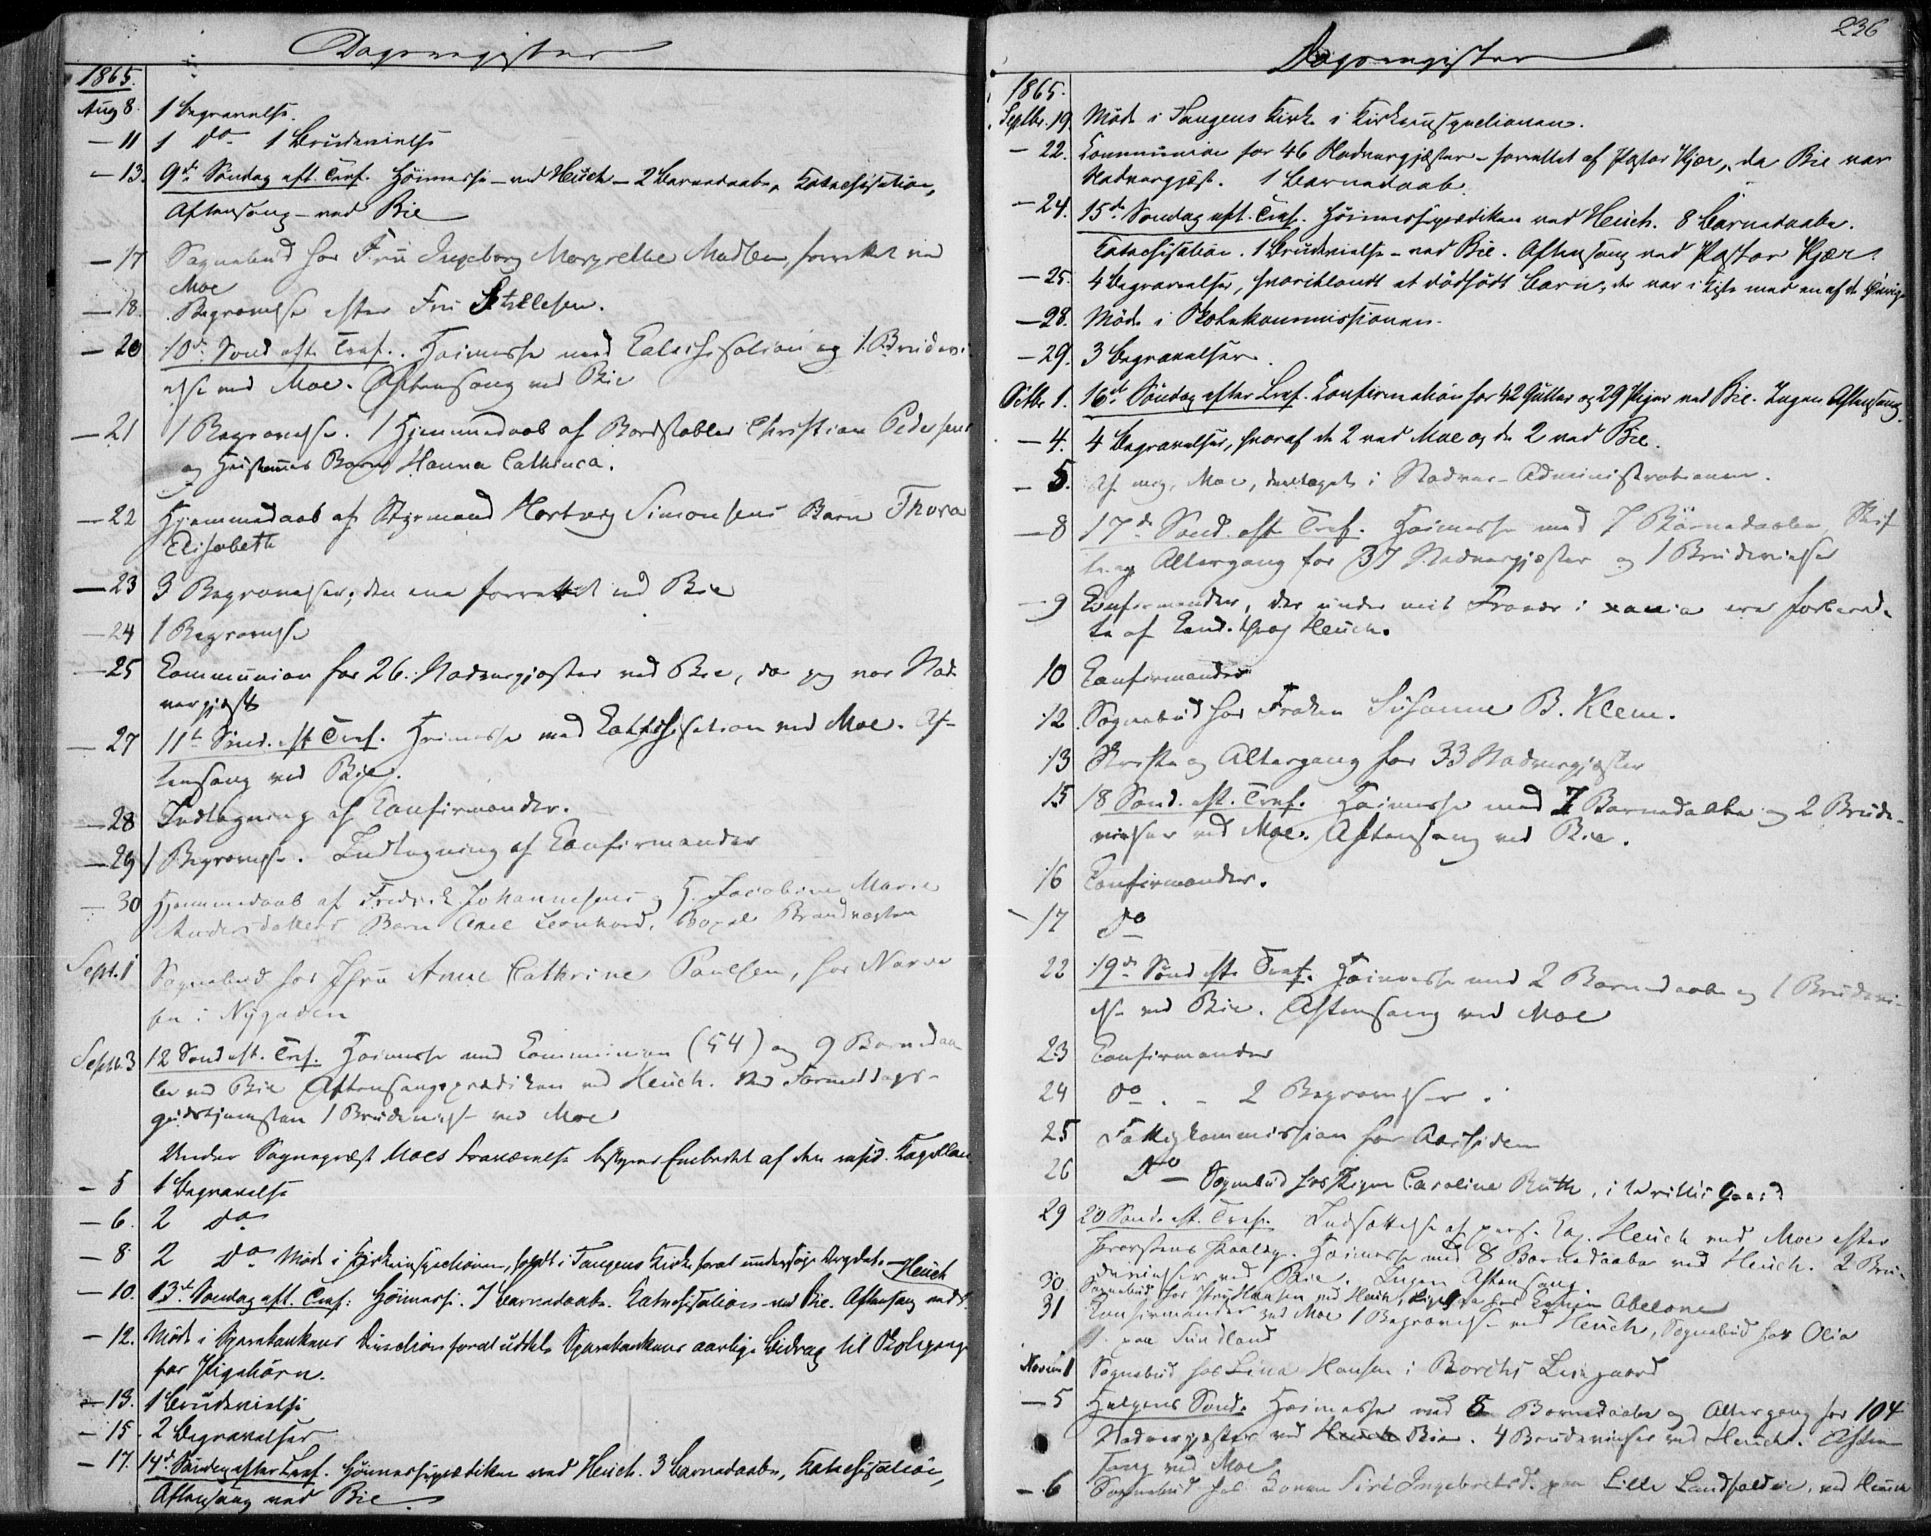 Dagsregister
1865.
Aug 8. 1 Begravelse.
- 11 1 do 1 Brudevielse
- 13. 9de Søndag eft. Tref. Høimesse - ved Heuch - 2 Barnedaab, Katechisation,
Aftensang - ved Bie
- 17 Sognebud hos Fru Ingeborg Margrethe Madsen, forrettet ved
Moe
- 18. Begravelse efter Fru Stillesen.
- 20 10de Sond. eft. Tref. Høimesse med Catechisation og 1 Brudevi-
else ved Moe. Aftensang ved Bie
- 21 1 Begravelse. 1 Hjemmedaab af Bordstabler Christian Pedersens
og Hustrues Barn Hanna Cathinca.
- 22 Hjemmedaab af Styrmand Hartvig Simonsens Barn Thora
Elisabeth
- 23 3 Begravelser; den ene forrettet ved Bie
- 24 1 Begravelse
- 25 Communion for 26 Nadvergjæster ved Bie, da jeg var Nad-
vergjæst
- 27 11te Sønd. eft Tref. Høimesse med Katechisation ved Moe. Af-
tensang ved Bie.
- 28 Indtegning af Confirmander.
- 29 1 Begravelse. Indtegning af Confirmander
- 30 Hjemmedaab af Fredrik Johannesens og H. Jacobine Marie
Andersdatters Barn Axel Leonhard. Brandvagten
Sept. 1 Sognebud hos Jfru Anne Cathrine Paulsen, hos
i Nygaden
Septb. 3 12 Sond eft. Tref. Høimesse med Communion (54) og 9 Barnedaa-
be ved Bie Aftensangsprædiken ved Heuch. Ved Formiddags-
gudstjenesten 1 Brudevielse ved Moe
Under Sognepræst Moes Fraværelse bestyres Embedet af den resid. Kapellan
- 5 1 Begravelse
- 6. 2 do
- 8 2 do Møde i Kirkeinspectionen, holdt i Tangens Kirke forat undersøge Orgelet. Heuch
- 10. 13de Søndag eft. Tref: Høimesse. 7 Barnedaab. Katechisation - ved Bie. Aftensang ved
- 12. Møde i Sparebankens Direction forat uddele Sparebankens aarlige Bidrag til Skolegang
for Pigebørn.
- 13. 1 Brudevielse
- 15. 2 Begravelser
- 17. 14de Søndag efter Tref. Høimesseprædiken ved Heuch. 3 Barnedaab, Katechisation,
Aftensang ved Bie.
236
Dagsregister
1865.
Septbr. 19. Møde i Tangens Kirke i Kirkeinspectionen.
- 22. Communion for 46 Nadvergjæster - forrettet af Pastor Kjær, da Bie var
Nadvergjæst. 1 Barnedaab.
- 24. 15de Søndag eft. Tref. Høimesseprædiken ved Heuch. 8 Barnedaabe.
Katechisation. 1 Brudevielse - ved Bie. Aftensang ved Pastor Kjær.
- 25. 4 Begravelser, hvoriblandt et dødfødt Barn, der var i Kiste med en af de Øvrige
- 28. Møde i Skolekommissionen.
- 29. 3 Begravelser.
Octbr. 1. 16de Søndag efter Tref. Confirmation for 42 Gutter og 29 Piger ved Bie. Ingen Aftensang.
- 4. 4 Begravelser, hvoraf de 2 ved Moe og de 2 ved Bie.
- 5. Af mig, Moe, deeltaget i Administrationen.
- 8 17de Sond. eft Tref. Høimesse med 7 Børnedaabe, Skrif-
te og Altergang for 37 Nadvergjæster og 1 Brudevielse
- 9 Confirmander, der under mit Fravær i Xania ere forbered-
te af Cand. theol Heuch.
10 Confirmander
12 Sognebud hos Frøken Susanne B. Klem.
13 Skrifte og Altergang for 33 Nadvergjæster
15 18 Sønd. eft. Tref. Høimesse med 7 Barnedaabe og 2 Brude-
vielser ved Moe. Aftensang ved Bie.
16 Confirmander.
- 17 do
22 19de Sønd eft. Tref. Høimesse med 2 Barnedaabe og 1 Brudevi-
else ved Bie. Aftensang ved Moe
23 Confirmander
24 do. - 2 Begravelser.
25 Fattigkommission for Aarsiden
26 Do Sognebud hos Pigen Caroline Ruth, i Gaard
29 20 Sønd. eft. Tref. Indsættelse af pers. Cap. Heuch ved Moe efter
Provstens Paalæg. Høimesse med 8 Barnedaabe ved Heuch. 2 Bru-
devielser ved Bie. Ingen Aftensang
30 Sognebud hos Hansen ved Heuch, ligesaa hos Abelone
31 Confirmander ved Moe 1 Begravelse ved Heuch, Sognebud hos Olia
paa Sundland
Novemb. 1 Sognebud hos Lina Hansen i Borchs Leiegaard
- 5 Helgens Sønd. Høimesse med 8 Barnedaabe og Altergang for 104
Nadvergjæster ved Heuch Bie. 4 Brudevielser ved Heuch. Aften-
sang ved Moe
- 6 Sognebud hos Konen Siri Ingebretsd. paa Lille Landfalden, ved Heuch